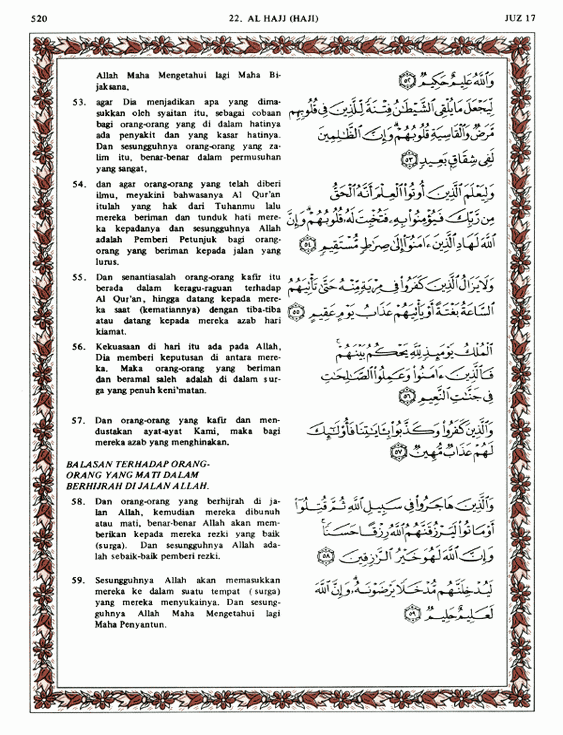 520
22. AL HAJJ (HAJI)
JUZ 17
Allah Maha Mengetahui lagi Maha Bi-
jaksana,
53. agar Dia menjadikan apa yang dima-
sukkan oleh syaitan itu, sebagai cobaan
bagi orang-orang yang di dalam hatinya
ada penyakit dan yang kasar hatinya.
Dan sesungguhnya orang-orang yang za-
lim itu, benar-benar dalam permusuhan
yang sangat,
54. dan agar orang-orang yang telah diberi
ilmu, meyakini bahwasanya Al Qur'an
itulah yang hak dari Tuhanmu lalu
mereka beriman dan tunduk hati mere-
ka kepadanya dan sesungguhnya Allah
adalah Pemberi Petunjuk bagi orang-
orang yang beriman kepada jalan yang
lurus.
55. Dan senantiasalah orang-orang kafir itu
berada dalam keragu-raguan terhadap
Al Qur'an, hingga datang kepada mere-
ka saat (kematiannya) dengan tiba-tiba
atau datang kepada mereka azab hari
kiamat.
56. Kekuasaan di hari itu ada pada Allah,
Dia memberi keputusan di antara mere-
ka. Maka orang-orang yang beriman
dan beramal saleh adalah di dalam sur-
ga yang penuh keni'matan.
57. Dan orang-orang yang kafir dan men-
dustakan ayat-ayat Kami, maka bagi
mereka azab yang menghinakan.
BALASAN TERHADAP ORANG-
ORANG YANG MATI DALAM
BERHIJRAH DI JALAN ALLAH.
58. Dan orang-orang yang berhijrah di ja-
lan Allah, kemudian mereka dibunuh
atau mati, benar-benar Allah akan mem-
berikan kepada mereka rezki yang baik
(surga). Dan sesungguhnya Allah ada-
lah sebaik-baik pemberi rezki.
59. Sesungguhnya Allah akan memasukkan
mereka ke dalam suatu tempat (surga)
yang mereka menyukainya. Dan sesung-
guhnya Allah Maha Mengetahui lagi
Maha Penyantun.
وَٱللَّهُ عَلِيمٌ حَكِيمٌ ٥٢
لِّيَجْعَلَ مَا يُلْقِى ٱلشَّيْطَٰنُ فِتْنَةً لِّلَّذِينَ فِى قُلُوبِهِم
مَّرَضٌ وَٱلْقَاسِيَةِ قُلُوبُهُمْ ۗ وَإِنَّ ٱلظَّٰلِمِينَ
لَفِى شِقَاقٍۭ بَعِيدٍ ٥٣
وَلِيَعْلَمَ ٱلَّذِينَ أُوتُوا۟ ٱلْعِلْمَ أَنَّهُ ٱلْحَقُّ
مِن رَّبِّكَ فَيُؤْمِنُوا۟ بِهِۦ فَتُخْبِتَ لَهُۥ قُلُوبُهُمْ ۗ وَإِنَّ
ٱللَّهَ لَهَادِ ٱلَّذِينَ ءَامَنُوٓا۟ إِلَىٰ صِرَٰطٍ مُّسْتَقِيمٍ ٥٤
وَلَا يَزَالُ ٱلَّذِينَ كَفَرُوا۟ فِى مِرْيَةٍ مِّنْهُ حَتَّىٰ تَأْتِيَهُمُ
ٱلسَّاعَةُ بَغْتَةً أَوْ يَأْتِيَهُمْ عَذَابُ يَوْمٍ عَقِيمٍ ٥٥
ٱلْمُلْكُ يَوْمَئِذٍ لِّلَّهِ يَحْكُمُ بَيْنَهُمْ ۚ
فَٱلَّذِينَ ءَامَنُوا۟ وَعَمِلُوا۟ ٱلصَّٰلِحَٰتِ
فِى جَنَّٰتِ ٱلنَّعِيمِ ٥٦
وَٱلَّذِينَ كَفَرُوا۟ وَكَذَّبُوا۟ بِـَٔايَٰتِنَا فَأُو۟لَٰٓئِكَ
لَهُمْ عَذَابٌ مُّهِينٌ ٥٧
وَٱلَّذِينَ هَاجَرُوا۟ فِى سَبِيلِ ٱللَّهِ ثُمَّ قُتِلُوٓا۟
أَوْ مَاتُوا۟ لَيَرْزُقَنَّهُمُ ٱللَّهُ رِزْقًا حَسَنًا ۚ
وَإِنَّ ٱللَّهَ لَهُوَ خَيْرُ ٱلرَّٰزِقِينَ ٥٨
لَيُدْخِلَنَّهُم مُّدْخَلًا يَرْضَوْنَهُۥ ۗ وَإِنَّ ٱللَّهَ
لَعَلِيمٌ حَلِيمٌ ٥٩